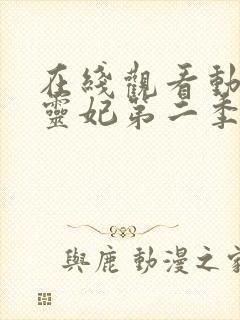 在綫觀看動
靈妃第二季
與鹿 動漫之家